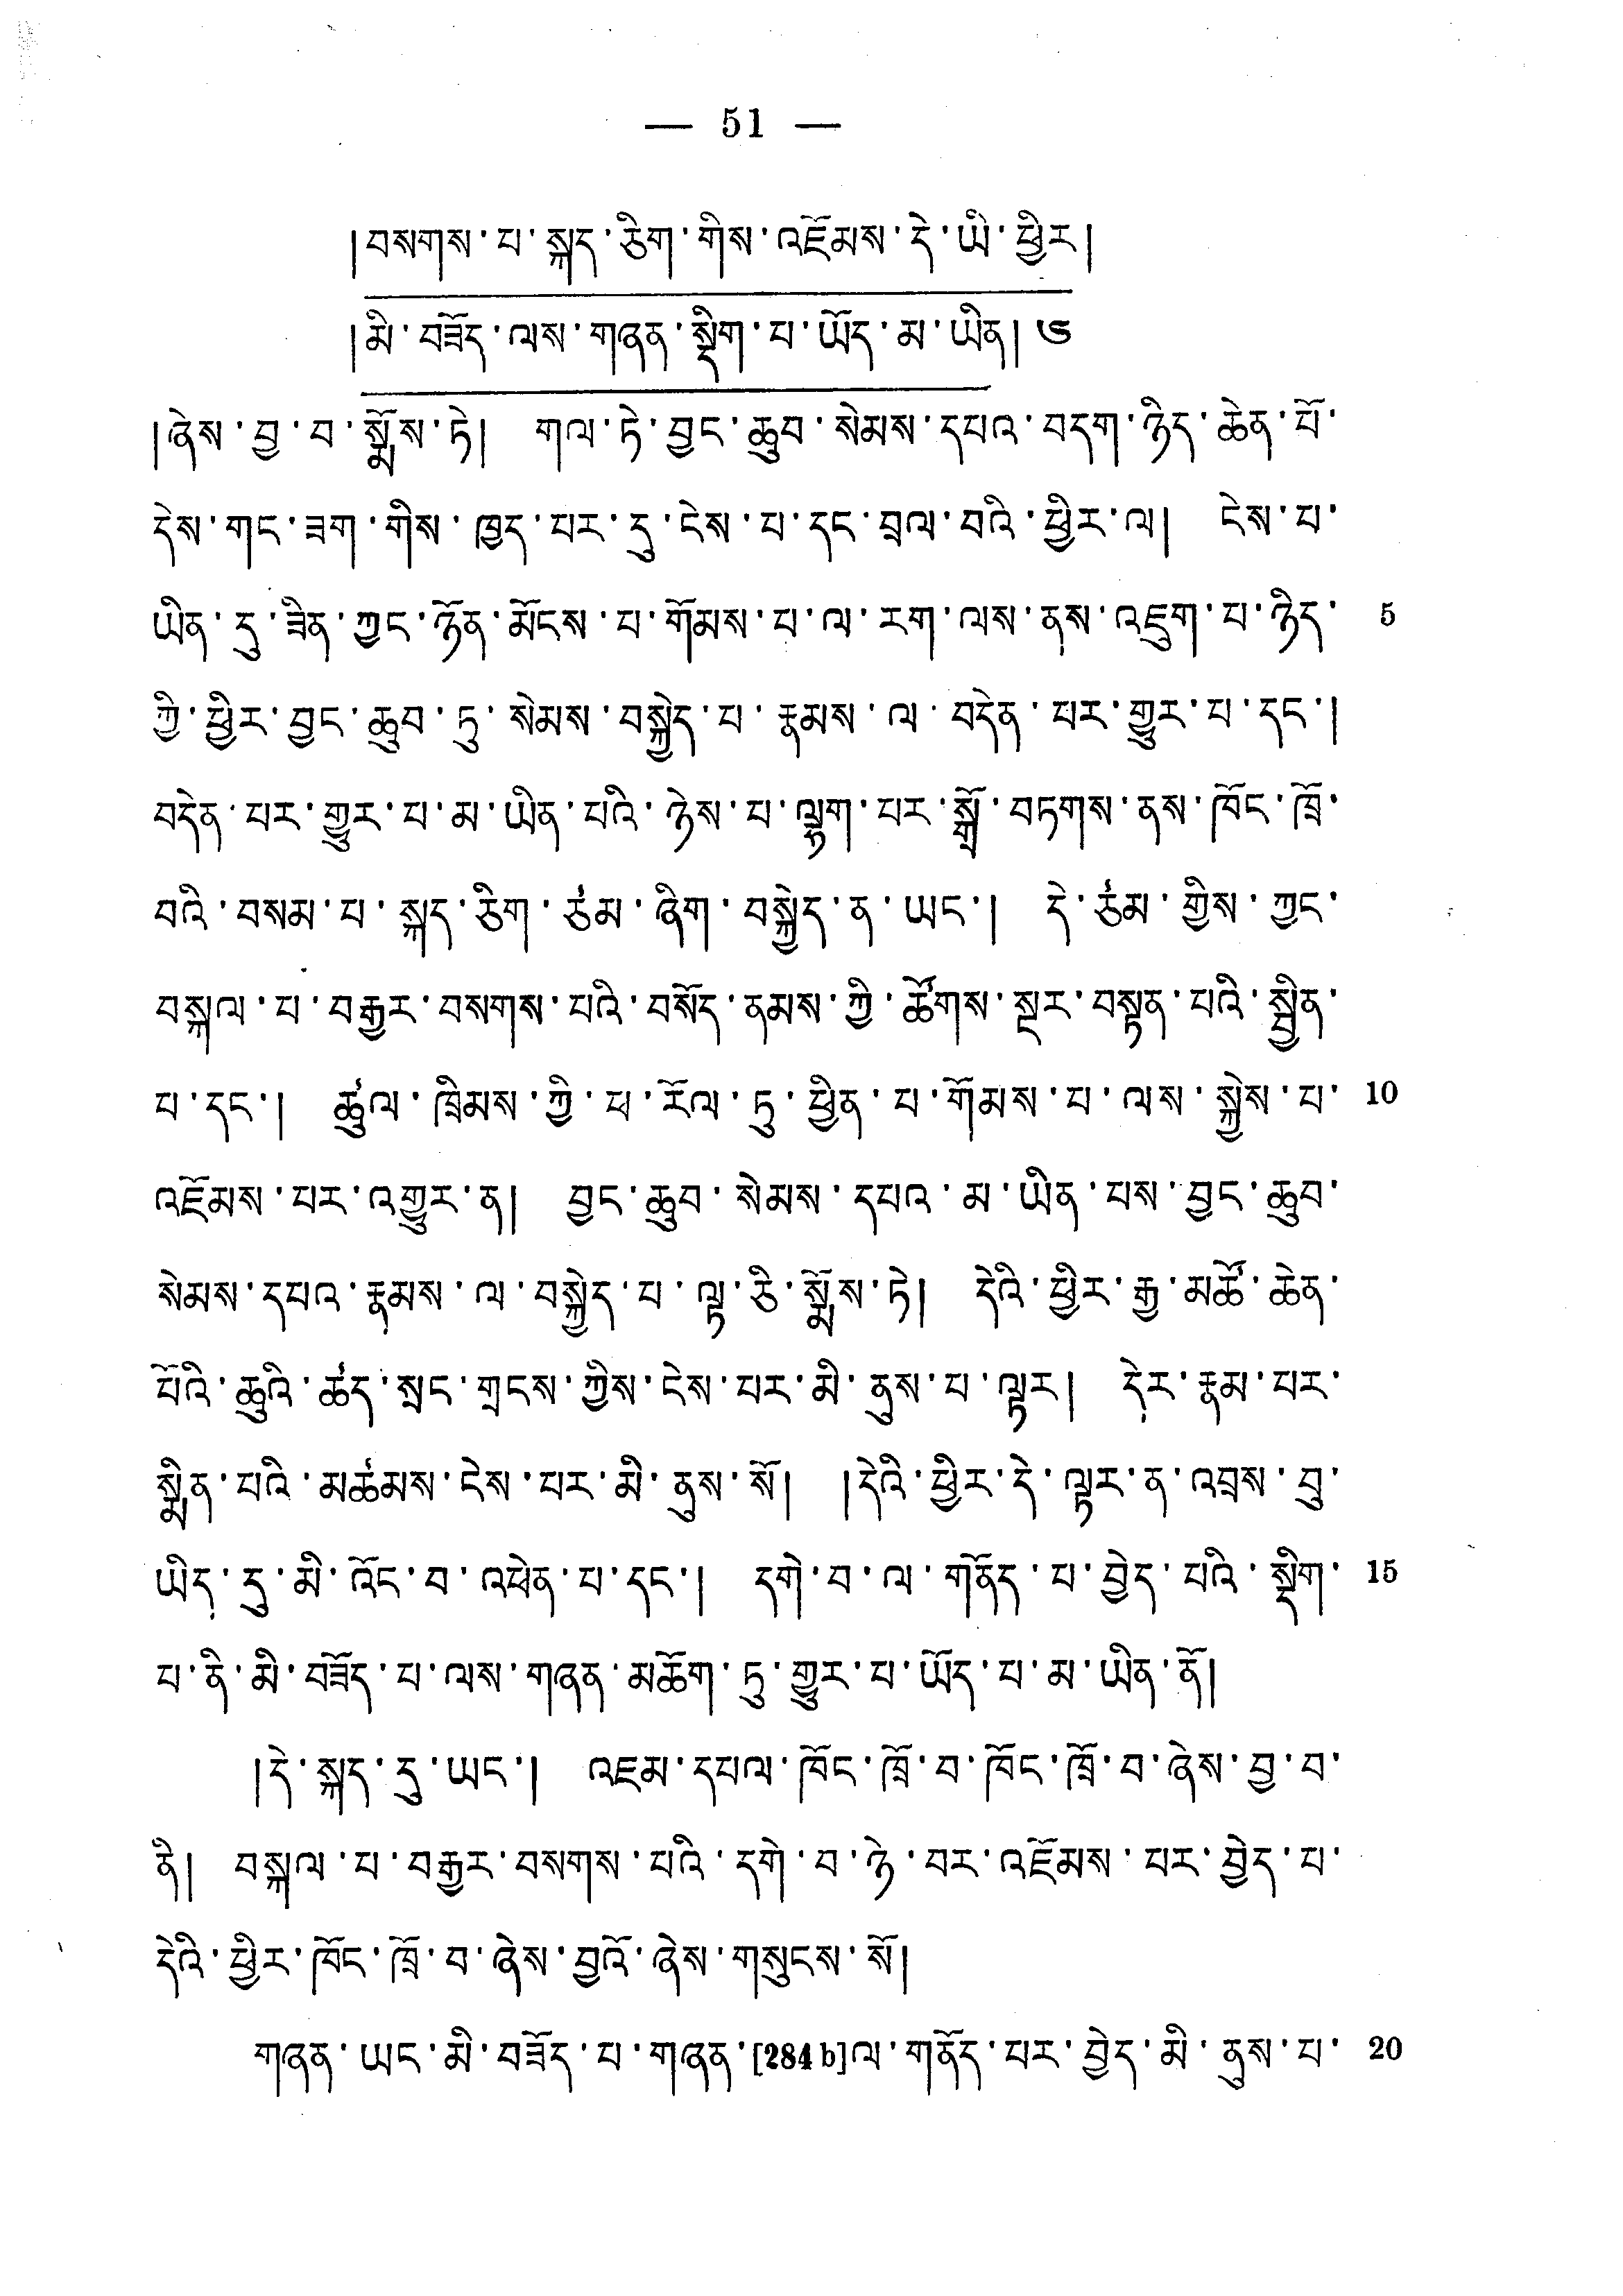 — 51 —
།བསགས་པ་སྐད་ཅིག་གིས་འཇོམས་དེ་ཡི་ཕྱིར།
།མི་བཟོད་ལས་གཞན་སྡིག་པ་ཡོད་མ་ཡིན། ༦
།ཞེས་བྱ་བ་སྨོས་ཏེ། གལ་ཏེ་བྱང་ཆུབ་སེམས་དཔའ་བདག་ཉིད་ཆེན་པོ་
དེས་གང་ཟག་གིས་ཁྱད་པར་དུ་ངེས་པ་དང་བྲལ་བའི་ཕྱིར་ལ། ངེས་པ་
ཡིན་དུ་ཟིན་ཀྱང་ཉོན་མོངས་པ་གོམས་པ་ལ་རག་ལས་ནས་འཇུག་པ་ཉིད་ 5
ཀྱི་ཕྱིར་བྱང་ཆུབ་ཏུ་སེམས་བསྐྱེད་པ་རྣམས་ལ་བདེན་པར་གྱུར་པ་དང་།
བདེན་པར་གྱུར་པ་མ་ཡིན་པའི་ཉེས་པ་ལྷག་པར་སྒྲོ་བཏགས་ནས་ཁོང་ཁྲོ་
བའི་བསམ་པ་སྐད་ཅིག་ཙམ་ཞིག་བསྐྱེད་ན་ཡང་། དེ་ཙམ་གྱིས་ཀྱང་
བསྐལ་པ་བརྒྱར་བསགས་པའི་བསོད་ནམས་ཀྱི་ཚོགས་སྔར་བསྟན་པའི་སྦྱིན་
པ་དང་། ཚུལ་ཁྲིམས་ཀྱི་ཕ་རོལ་ཏུ་ཕྱིན་པ་གོམས་པ་ལས་སྐྱེས་པ་ 10
འཇོམས་པར་འགྱུར་ན། བྱང་ཆུབ་སེམས་དཔའ་མ་ཡིན་པས་བྱང་ཆུབ་
སེམས་དཔའ་རྣམས་ལ་བསྐྱེད་པ་ལྟ་ཅི་སྨོས་ཏེ། དེའི་ཕྱིར་རྒྱ་མཚོ་ཆེན་
པོའི་ཆུའི་ཚད་སྲང་གྲངས་ཀྱིས་ངེས་པར་མི་ནུས་པ་ལྟར། དེར་རྣམ་པར་
སྨིན་པའི་མཚམས་ངེས་པར་མི་ནུས་སོ། །དེའི་ཕྱིར་དེ་ལྟར་ན་འབྲས་བུ་
ཡིད་དུ་མི་འོང་བ་འཕེན་པ་དང་། དགེ་བ་ལ་གནོད་པ་བྱེད་པའི་སྡིག་ 15
པ་ནི་མི་བཟོད་པ་ལས་གཞན་མཆོག་ཏུ་གྱུར་པ་ཡོད་པ་མ་ཡིན་ནོ།
།དེ་སྐད་དུ་ཡང་། འཇམ་དཔལ་ཁོང་ཁྲོ་བ་ཁོང་ཁྲོ་བ་ཞེས་བྱ་བ་
ནི། བསྐལ་པ་བརྒྱར་བསགས་པའི་དགེ་བ་ཉེ་བར་འཇོམས་པར་བྱེད་པ་
དེའི་ཕྱིར་ཁོང་ཁྲོ་བ་ཞེས་བྱའོ་ཞེས་གསུངས་སོ།
གཞན་ཡང་མི་བཟོད་པ་གཞན་[284b]ལ་གནོད་པར་བྱེད་མི་ནུས་པ་ 20